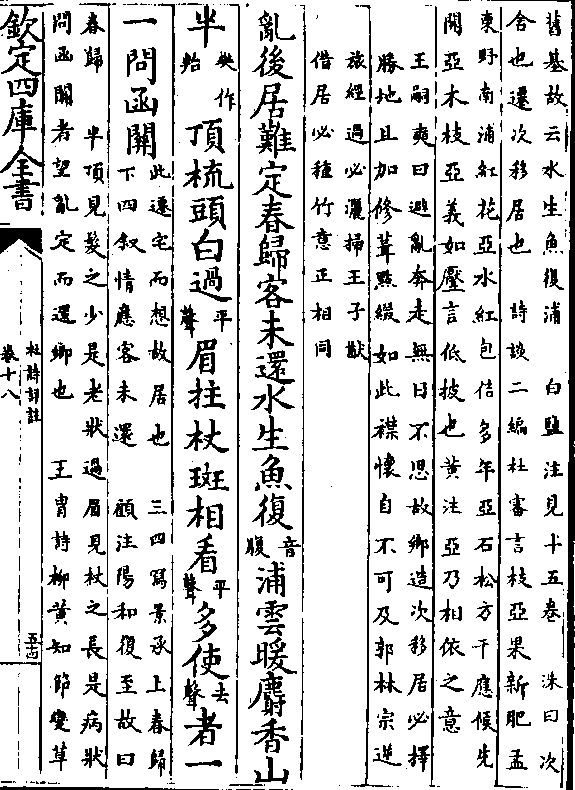 舊基故云水生魚復浦　白鹽注見十五卷　洙曰次
舍也還次移居也　詩談二編杜審言枝亞果新肥孟
東野南浦紅花亞水紅包佶多年亞石松方干應候先
開亞木枝亞義如壓言低披也黃注亞乃相依之意
王嗣奭曰避亂奔走無日不思故鄉造次移居必擇
勝地且加修葺㸃綴如此襟懷自不可及郭林宗逆
旅經過必灑掃王子猷
借居必種竹意正相同
亂後居難定春歸客未還水生魚復音腹浦雲暖麝香山
半樊作㸃頂梳頭白過平聲眉拄杖斑相看平聲多使去聲者一
一問函關此遷宅而想故居也　三四寫景承上春歸
下四叙情應客未還　顧注陽和復至故曰
春歸　半頂見髮之少是老狀過眉見杖之長是病狀
問函關者望亂定而還鄉也　王胄詩柳黃知節變草
欽定四庫全書
杜詩詳註
卷十八